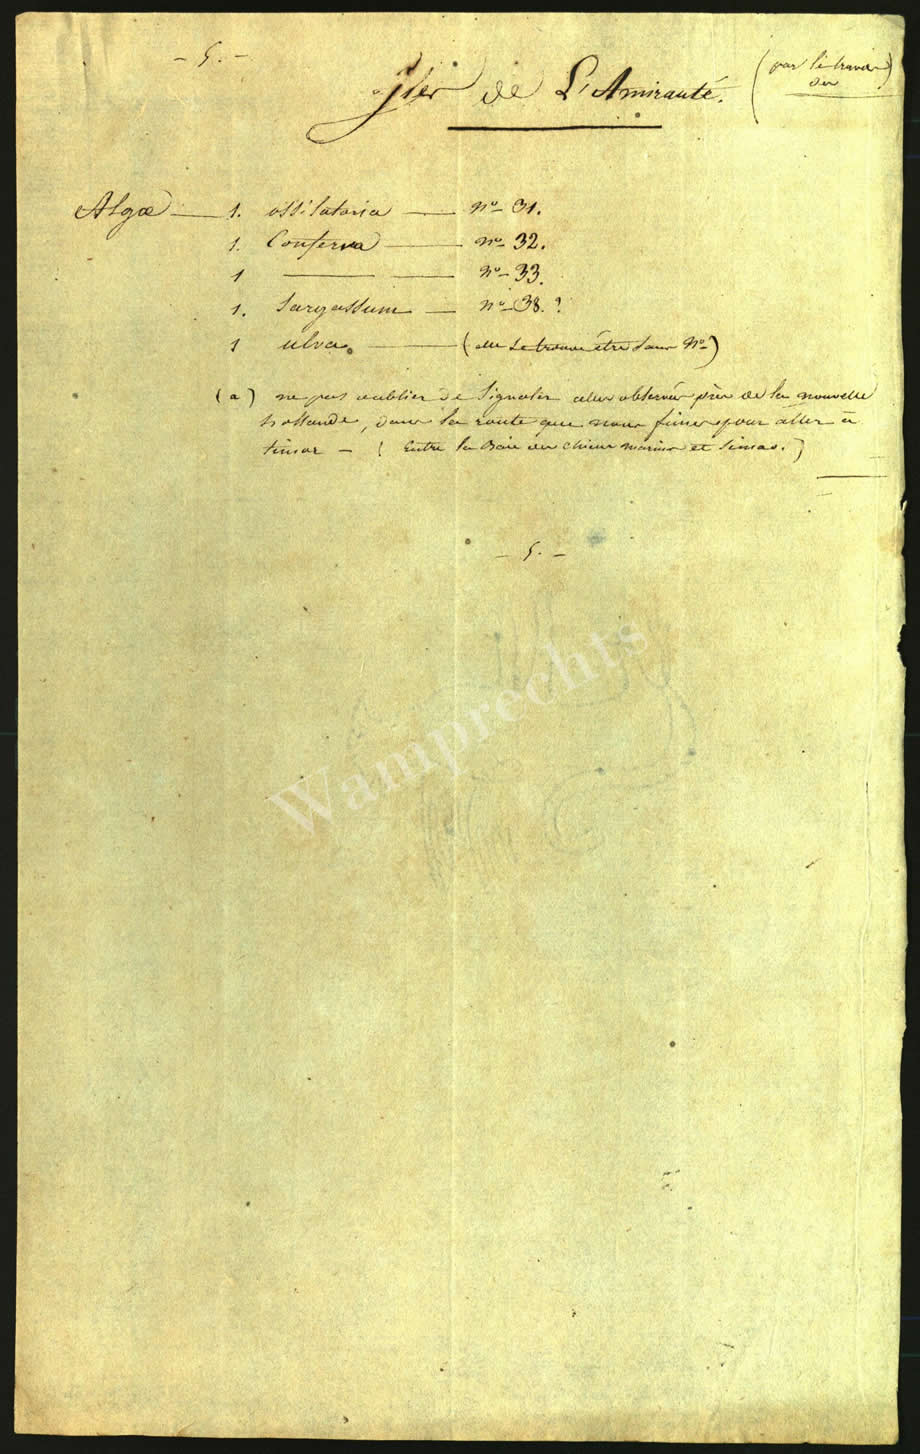 - 5. -
Isles de L'Amirauté.
(par
Algæ — 1. ossilatoria — nº 31.
1. Conferva — nº 32.
1 — — nº 33.
1. Sargassum — nº 38.?
1 ulva — (elle se trouve être sans Nº)
(a) ne pas oublier de signaler celles observées près de la nouvelle
hollande, dans la route que nous fimes pour aller à
timor - (Entre la Baie des chiens marins et Timor.)
- 5. -
Wamprechts